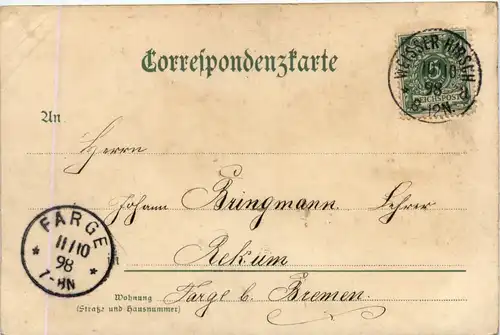 Correspondenzkarte
WEISSER HIRSCH
10
98
-12N.
5
REICHSPOST
An
Herrn
Johann Bringmann, Lehrer
Rekum
FARGE
11/10
98
7-8N
Wohnung
(Straße und Hausnummer)
Farge b. Bremen.